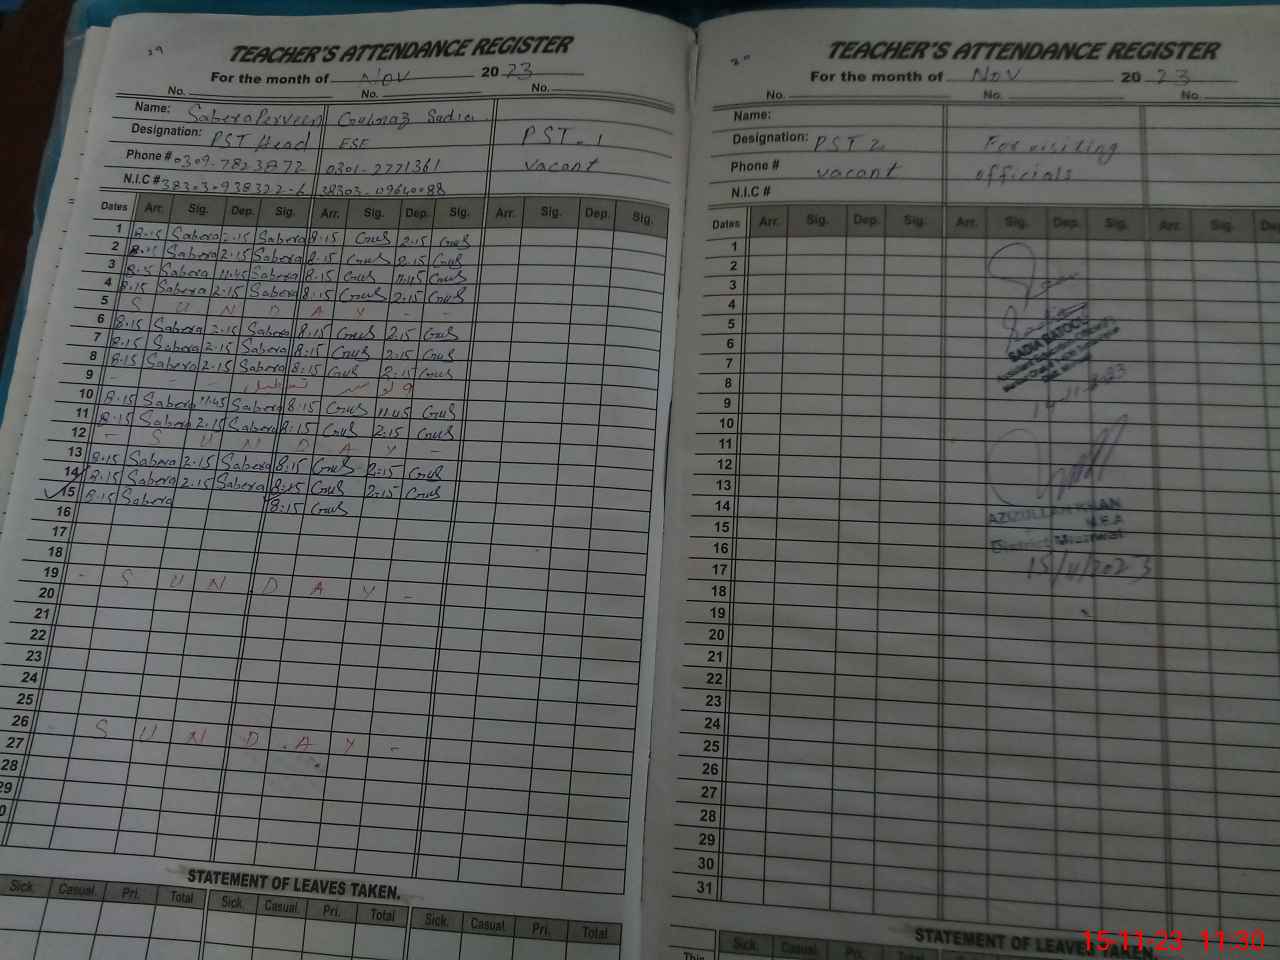 29
TEACHER'S ATTENDANCE REGISTER
For the month of Nov 20 23
No. No. No.
Name: Sabera Perveen Gulnaz Sadia
Designation: PST Head ESE PST-1
Phone # 0309-7823872 0301-2771361 vacant
N.I.C #
Dates Arr. Sig. Dep. Sig. Arr. Sig. Dep. Sig. Arr. Sig. Dep. Sig.
1 8:15 Sabera 2:15 Sabera 8:15 Gul 2:15 Gul
2 8:15 Sabera 2:15 Sabera 8:15 Gul 2:15 Gul
3 8:15 Sabera 11:45 Sabera 8:15 Gul 11:45 Gul
4 8:15 Sabera 2:15 Sabera 8:15 Gul 2:15 Gul
5 S U N D A Y - -
6 8:15 Sabera 2:15 Sabera 8:15 Gul 2:15 Gul
7 8:15 Sabera 2:15 Sabera 8:15 Gul 2:15 Gul
8 8:15 Sabera 2:15 Sabera 8:15 Gul 2:15 Gul
9 - - -
10 8:15 Sabera 11:45 Sabera 8:15 Gul 11:45 Gul
11 8:15 Sabera 2:15 Sabera 8:15 Gul 2:15 Gul
12 - S U N D A Y -
13 8:15 Sabera 2:15 Sabera 8:15 Gul 2:15 Gul
14 8:15 Sabera 2:15 Sabera 8:15 Gul 2:15 Gul
15 8:15 Sabera 8:15 Gul
16
17
18
19 - S U N D A Y -
20
21
22
23
24
25
26 - S U N D A Y -
27
28
29
0
STATEMENT OF LEAVES TAKEN.
Sick. Casual. Pri. Total Sick. Casual. Pri. Total Sick. Casual. Pri. Total
30
TEACHER'S ATTENDANCE REGISTER
For the month of Nov 20 23
No. No. No.
Name:
Designation: PST 2 For visiting
Phone # vacant officials
N.I.C #
Dates Arr. Sig. Dep. Sig. Arr. Sig. Dep. Sig. Arr. Sig. De
1
2
3
4
5
6
7 SADIA BATOOL
8
9 14-11-2023
10
11
12
13
14 AZIZULLAH KHAN
15 M.E.A
16 District Mianwali
17 15/11/2023
18
19
20
21
22
23
24
25
26
27
28
29
30
31
STATEMENT OF LEAVES TAKEN.
This Sick. Casual. Po. Total Sick. Casual.
15-11-23 11:30